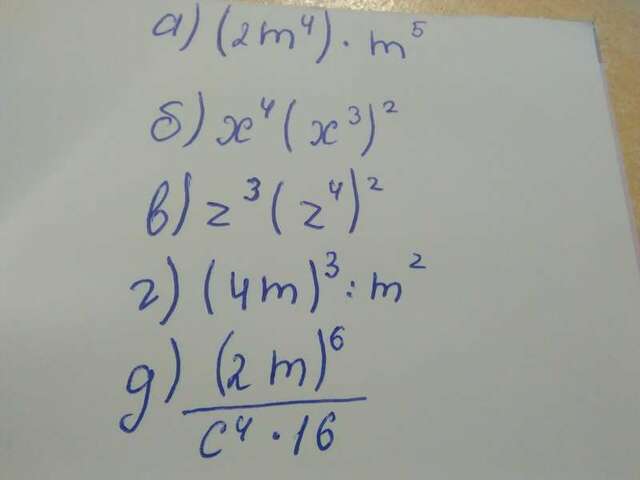 а) (2m⁴) · m⁵
б) x⁴(x³)²
в) z³(z⁴)²
г) (4m)³ : m²
д) (2m)⁶ / c⁴ · 16